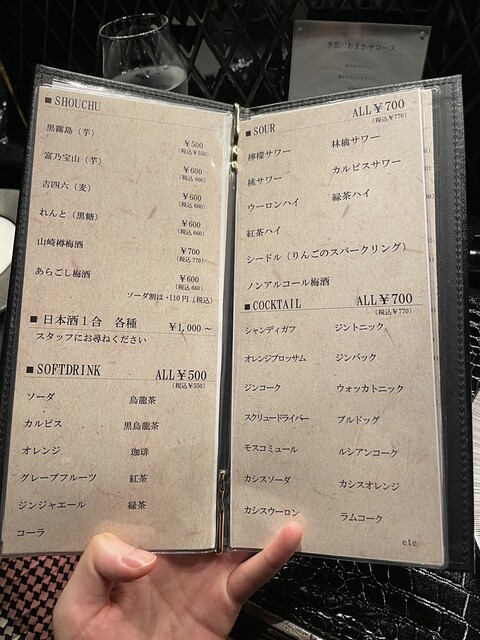 季節のおまかせコース
■ SHOUCHU
黒霧島（芋）
￥500
(税込￥550)
富乃宝山（芋）
￥600
(税込 660)
吉四六（麦）
￥600
(税込 660)
れんと（黒糖）
￥600
(税込 660)
山崎樽梅酒
￥700
(税込 770)
あらごし梅酒
￥600
(税込 660)
ソーダ割は +110 円（税込）
■ 日本酒１合　各種　￥1,000 ～
スタッフにお尋ねください
■ SOFTDRINK　ALL￥500
(税込￥550)
ソーダ　烏龍茶
カルピス　黒烏龍茶
オレンジ　珈琲
グレープフルーツ　紅茶
ジンジャエール　緑茶
コーラ
■ SOUR　ALL￥700
(税込￥770)
檸檬サワー　林檎サワー
桃サワー　カルピスサワー
ウーロンハイ　緑茶ハイ
紅茶ハイ
シードル（りんごのスパークリング）
ノンアルコール梅酒
■ COCKTAIL　ALL￥700
(税込￥770)
シャンディガフ　ジントニック
オレンジブロッサム　ジンバック
ジンコーク　ウォッカトニック
スクリュードライバー　ブルドッグ
モスコミュール　ルシアンコーク
カシスソーダ　カシスオレンジ
カシスウーロン　ラムコーク
etc